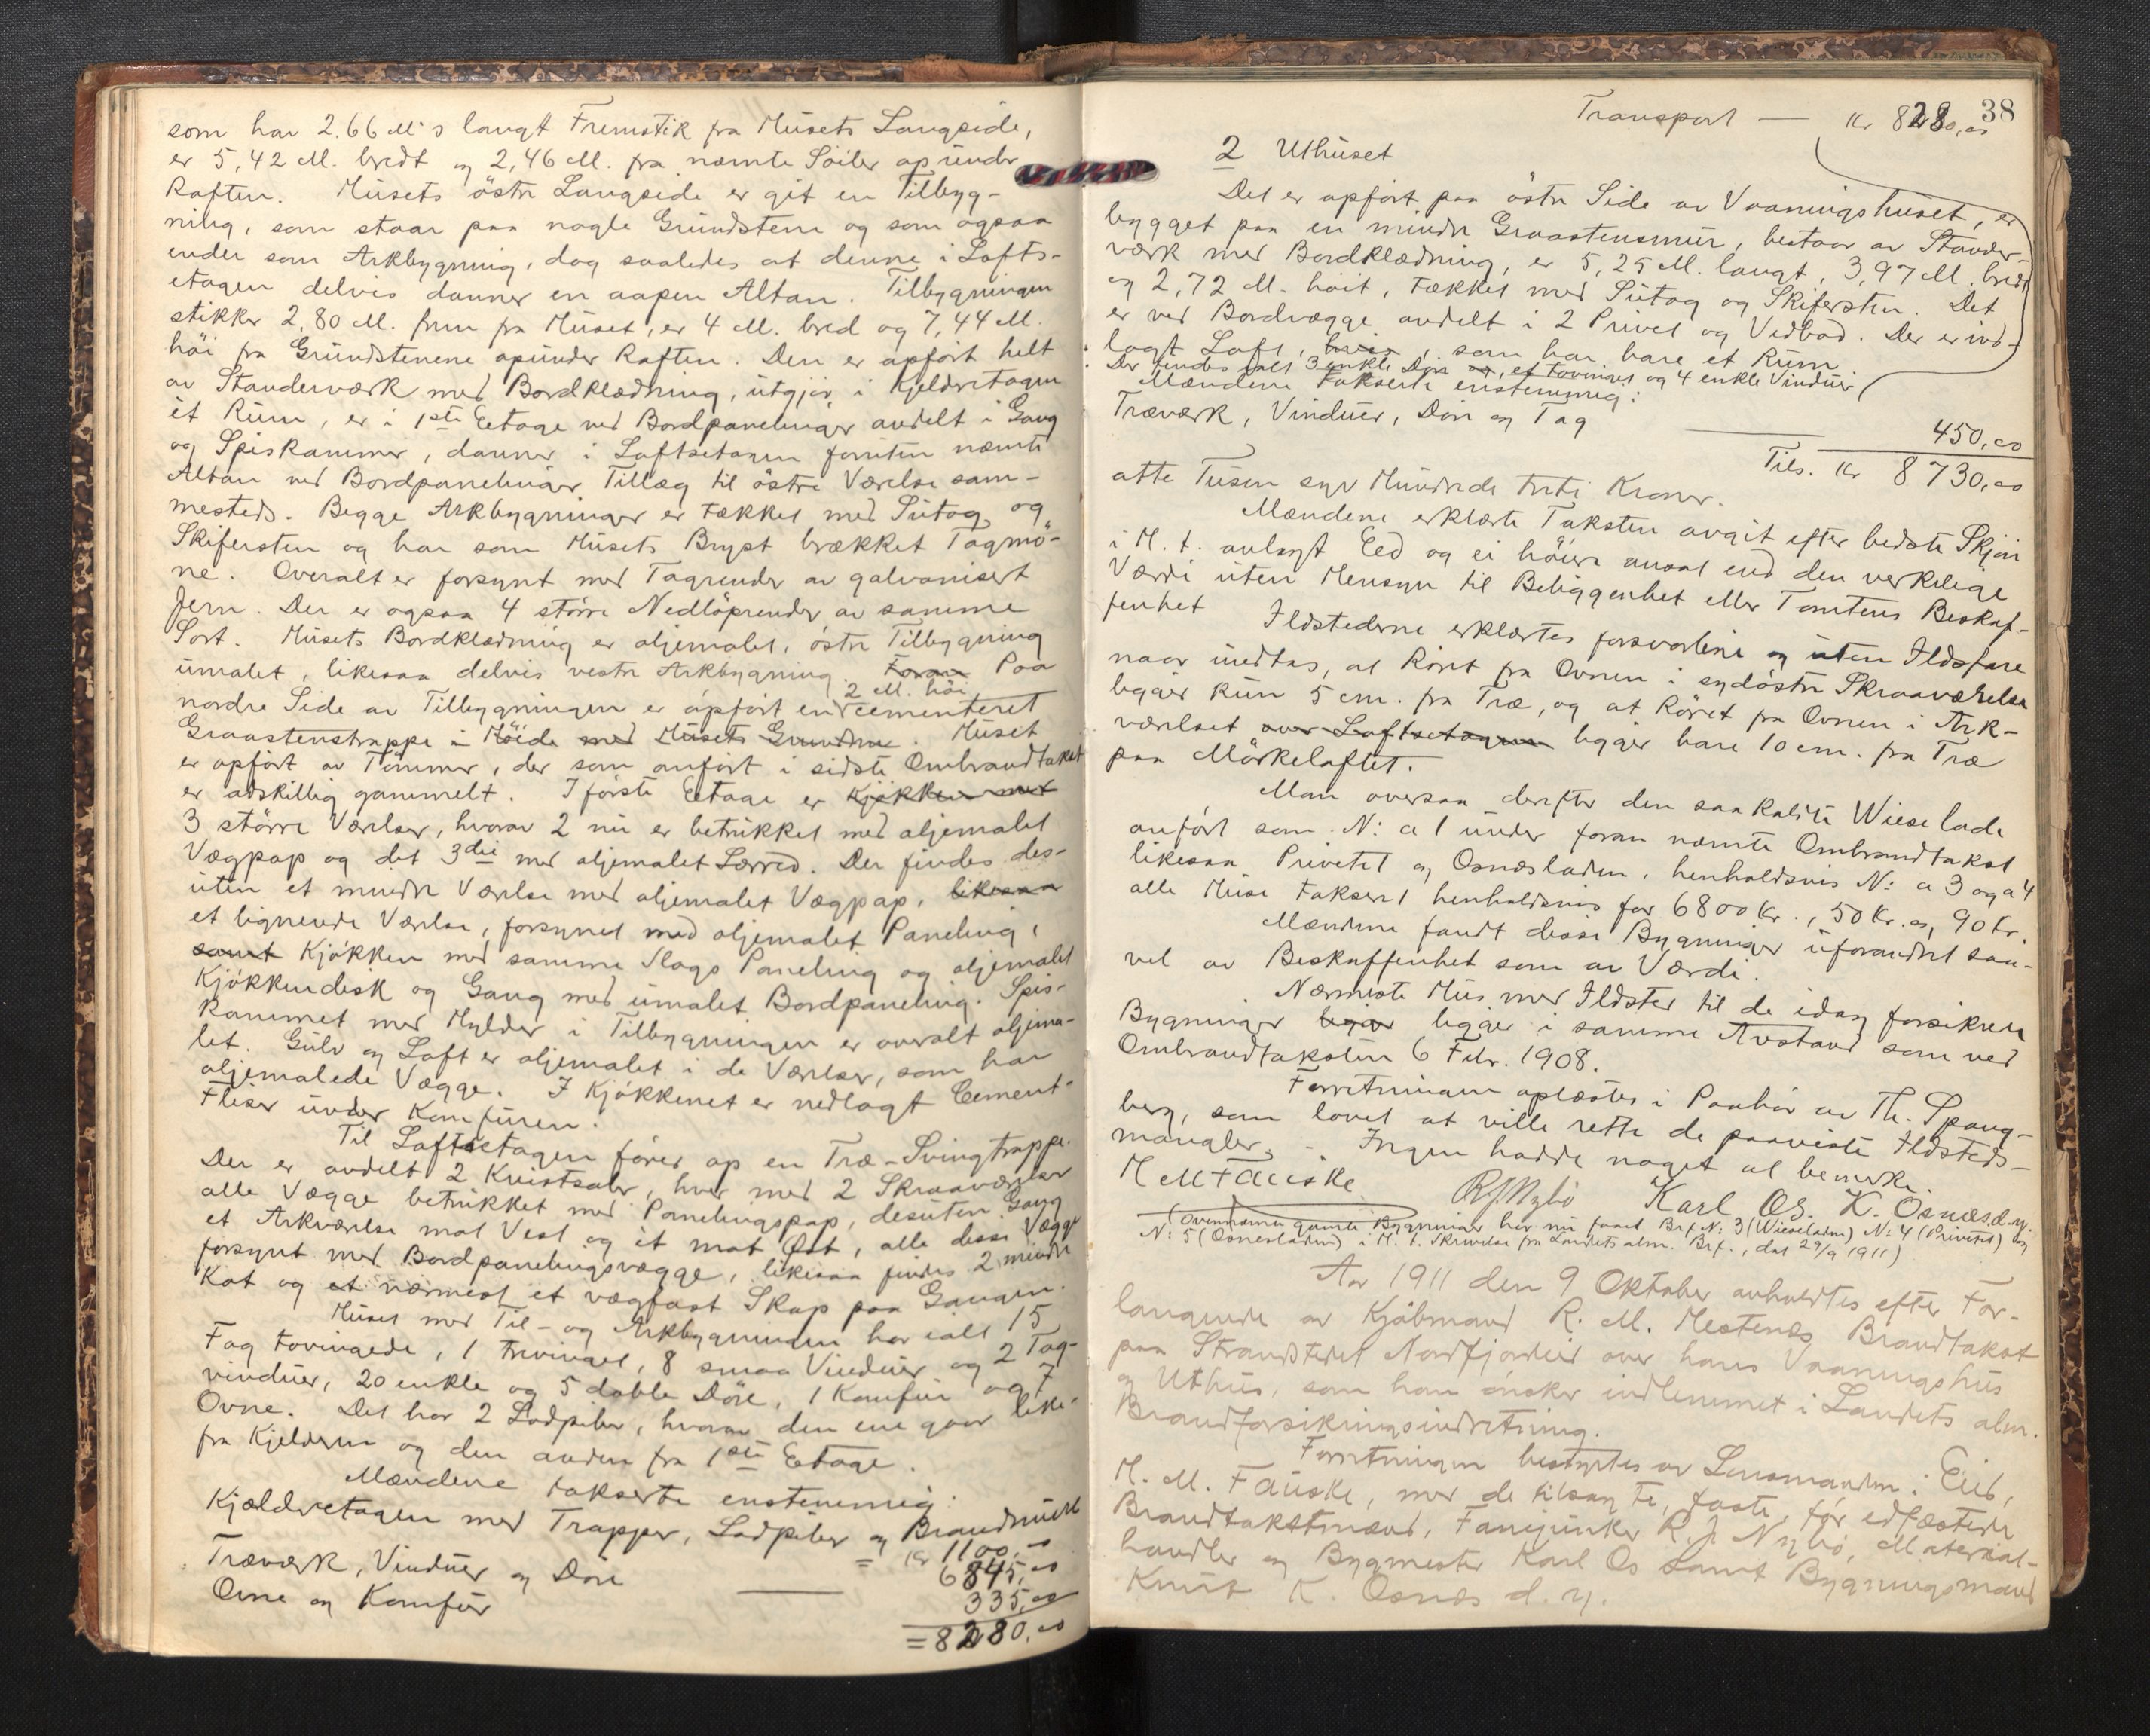 som har 2.66 M's langt Fremstik fra Husets Langside,
er 5,42 M. bredt og 2,46 M. fra næmte Söiler op under
Raften. Husets östre Langside er git en Tilbyg-
ning, som staar paa nogle Grundstene og som ogsaa
ender som Arkbygning, dog saaledes at denne i Lofts-
etagen delvis danner en aapen Altan. Tilbygningen
stikker 2,80 M. frem fra Huset, er 4 M. bred og 7,44 M.
höi fra Grundstenene opunder Raften. Den er opfört helt
av Standerværk med Bordklædning, utgjör i Kjelderetagen
et Rum, er i 1ste Etage ved Bordpanelinger avdelt i Gang
og Spiskammer, danner i Loftsetagen foruten næmte
Altan ved Bordpanelinger Tillæg til östre Værelse sam-
mesteds. Begge Arkbygninger er tækket med Sutag og
Skifersten og har som Husets Bryst brækket Tagmö-
ne. Overalt er forsynt med Tagrender av galvanisert
Jern. Der er ogsaa 4 större Nedlöprender av samme
Sort. Husets Bordklædning er oljemalet, östre Tilbygning
umalet, likesaa delvis vestre Arkbygning. Foran Paa
nordre Side av Tilbygningen er opfört en 2 M. höi cementeret
Graastenstrappe i Höide med Husets Grundmur. Huset
er opfört av Tömmer, der som anfört i sidste Ombrandtakst
er adskillig gammelt. I förste Etage er Kjökken med
3 större Værelser, hvorav 2 nu er betrukket med oljemalet
Vægpap og det 3die med oljemalet Lærred. Der findes des-
uten et mindre Værelse med oljemalet Vægpap, likesaa
et lignende Værelse, forsynet med oljemalet Paneling,
samt Kjökken med samme Slags Paneling og oljemalet
Kjökkendisk og Gang med umalet Bordpaneling. Spis-
kammet med Hylder i Tilbygningen er overalt oljema-
let. Gulv og Loft er oljemalet i de Værelser, som har
oljemalede Vægge. I Kjökkenet er nedlagt Cement-
Fliser under Komfuren.
Til Loftsetagen förer op en Træ-Svingtrappe.
Der er avdelt 2 Kvistsaler, hver med 2 Skraaværelser
alle Vægge betrukket med Panelingspap, desuten Gang
et Arkværelse mot Vest og et mot Øst, alle disse Vægge
forsynt med Bordpanelingsvægge, likesaa findes 2 mindre
Kot og et nærmest et vægfast Skap paa Gangen.
Huset med Til- og Arkbygninger har ialt 15
Fag tovingede, 1 trevinget, 8 smaa Vinduer og 2 Tag-
vinduer, 20 enkle og 5 doble Döre, 1 Komfur og 7
Ovne. Det har 2 Lodpiber, hvorav den ene gaar like-
fra Kjelderen og den anden fra 1ste Etage.
Mændene takserte enstemmig:
Kjældretagen med Trapper, Lodpiber og Brandmurer
= Kr 1100,00
Træværk, Vinduer og Döre 6845,00
Ovne og Komfur 335,00
= 8280,00
38
Transport — Kr 8280,00
2 Uthuset
Det er opfört paa östre Side av Vaaningshuset, er
bygget paa en mindre Graastensmur, bestaar av Stander-
værk med Bordklædning, er 5,25 M. langt, 3,97 M. bredt
og 2,72 M. höit, tækket med Sutag og Skifersten. Det
er ved Bordvægge avdelt i 2 Privet og Vedbod. Der er ind-
lagt Loft, som har bare et Rum
Der findes ialt 3 enkle Döre og et tovinget og 4 enkle Vinduer
Mændene takserte enstemmig:
Træværk, Vinduer, Döre og Tag
450,00
Tils. Kr 8730,00
otte Tusen syv Hundrede treti Kroner.
Mændene erklærte Taksten avgit efter bedste Skjön
i H. t. avlagt Eed og ei höiere ansat end den verkelige
Værdi uten Hensyn til Beliggenhet eller Tomtens Beskaf-
fenhet Ildstederne erklærtes forsvarlige og uten Ildsfare
naar undtas, at Röret fra Ovnen i sydöstre Skraaværelse
ligger kun 5 cm. fra Træ, og at Röret fra Ovnen i Ark-
værelset over Loftsetagen ligger bare 10 cm. fra Træ
paa Mörkeloftet.
Man oversaa derefter den saakaldte Wieselade
anfört som N: a 1 under foran næmte Ombrandtakst
likesaa Privetet og Osnæsladen, henholdsvis N: a 3 og a 4
alle Huse taksert henholdsvis for 6800 Kr., 50 Kr. og 90 Kr.
Mændene fandt disse Bygninger uforandret saa-
vel av Beskaffenhet som av Værdi.
Nærmeste Hus med Ildsted til de idag forsikrede
Bygninger ligger i samme Avstand som ved
Ombrandtaksten 6 Febr. 1908.
Forretningen oplæstes i Paahör av Th. Spang-
berg, som lovet at ville rette de paaviste Ildsteds-
mangler. - Ingen hadde noget at bemerke.
H M Fauske RJNybö Karl Os. K. Osnæs d.y.
(Ovennæmte gamle Bygninger har nu faaet Brf. N: 3 (Wieseladen) N: 4 (Privetet) og
N: 5 (Osnesladen) i H. t. Skrivelse fra Landets alm. Brf., dat 29/9 1911)
Aar 1911 den 9 Oktober avholdtes efter For-
langende av Kjöbmand R. M. Hestenæs Brandtakst
paa Strandstedet Nordfjordeid over hans Vaaningshus
og Uthus, som han önsker indlemmet i Landets alm.
Brandforsikringsindretning.
Forretningen bestyrtes av Lensmanden i Eid,
H. M. Fauske, med de tilsagte, faste, för edfæstede
Brandtakstmænd, Fanejunker R. J. Nybö, Material-
handler og Bygmester Karl Os samt Bygningsmand
Knut K. Osnæs d. y.